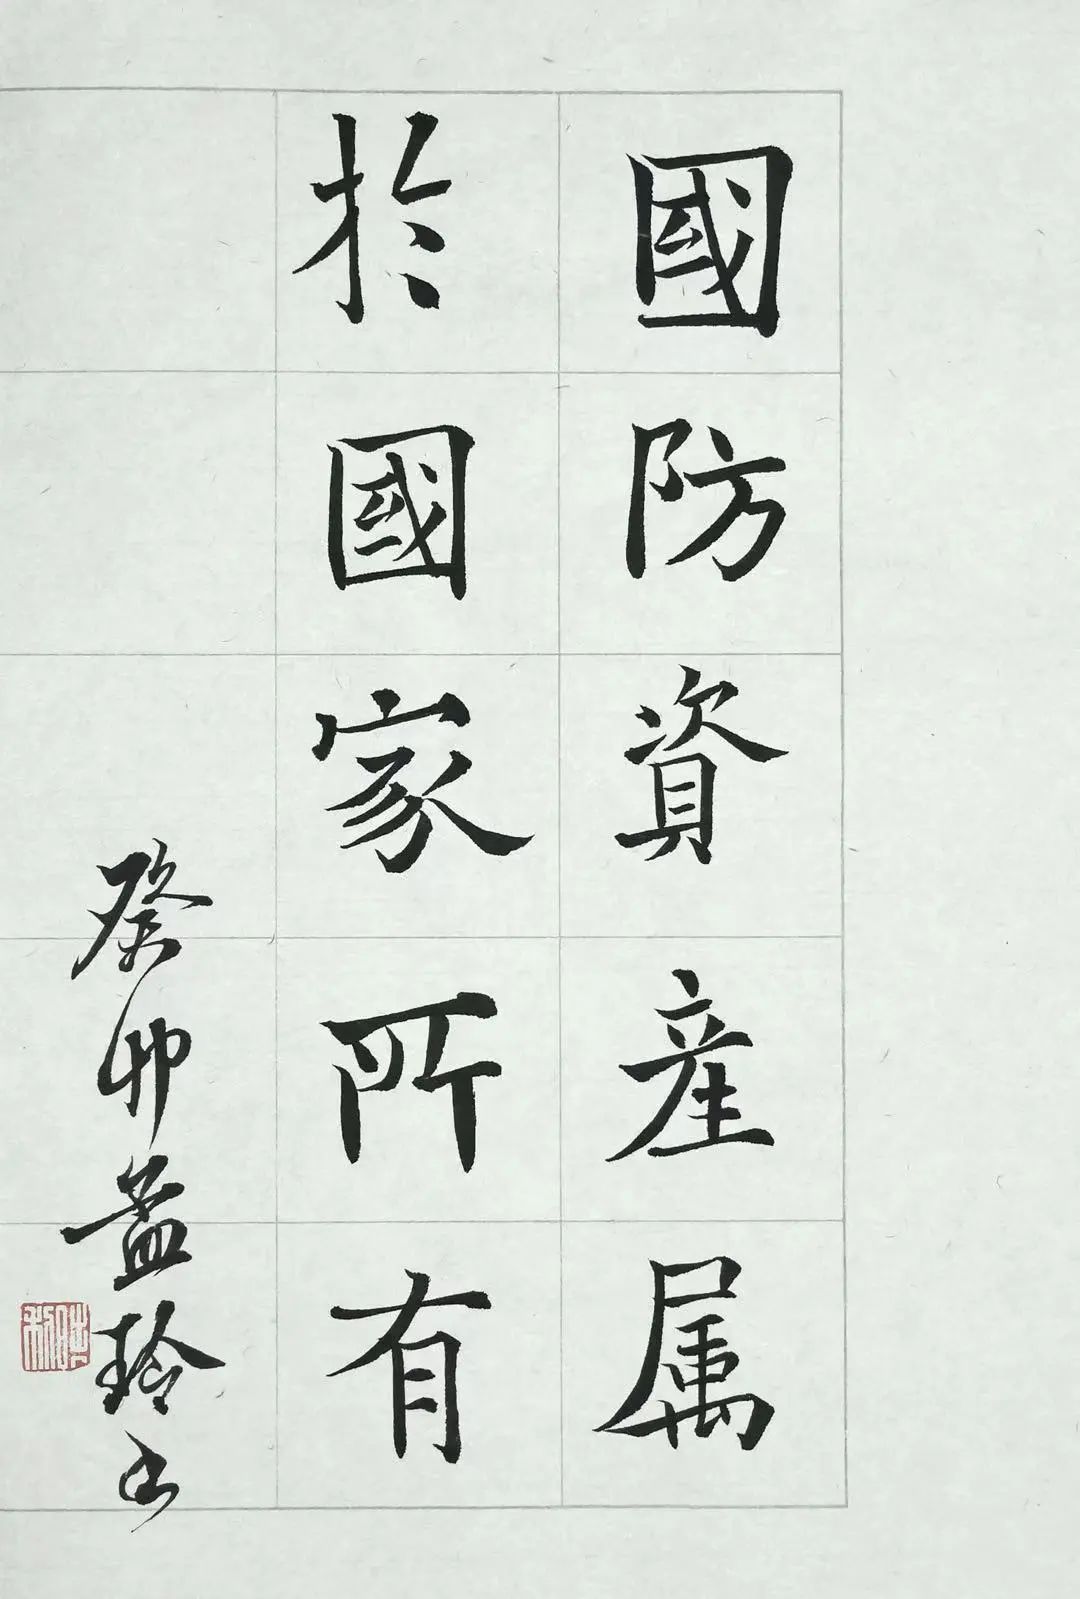 國防資産属
於國家所有
癸卯孟玲书